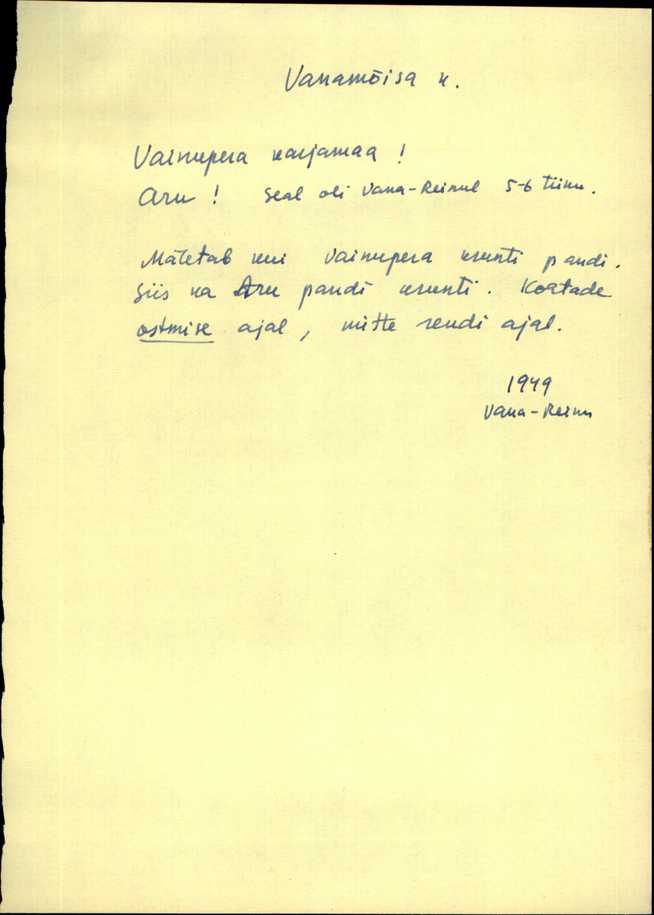 Vanamõisa k.
Vainupera karjamaa !
Aru ! Seal oli Vana-Reinul 5-6 tiinu.
Mäletab kui Vainupera krunti pandi.
Siis ka Aru pandi krunti. Kohtade
ostmise ajal, mitte rendi ajal.
1949
Vana-Reinu